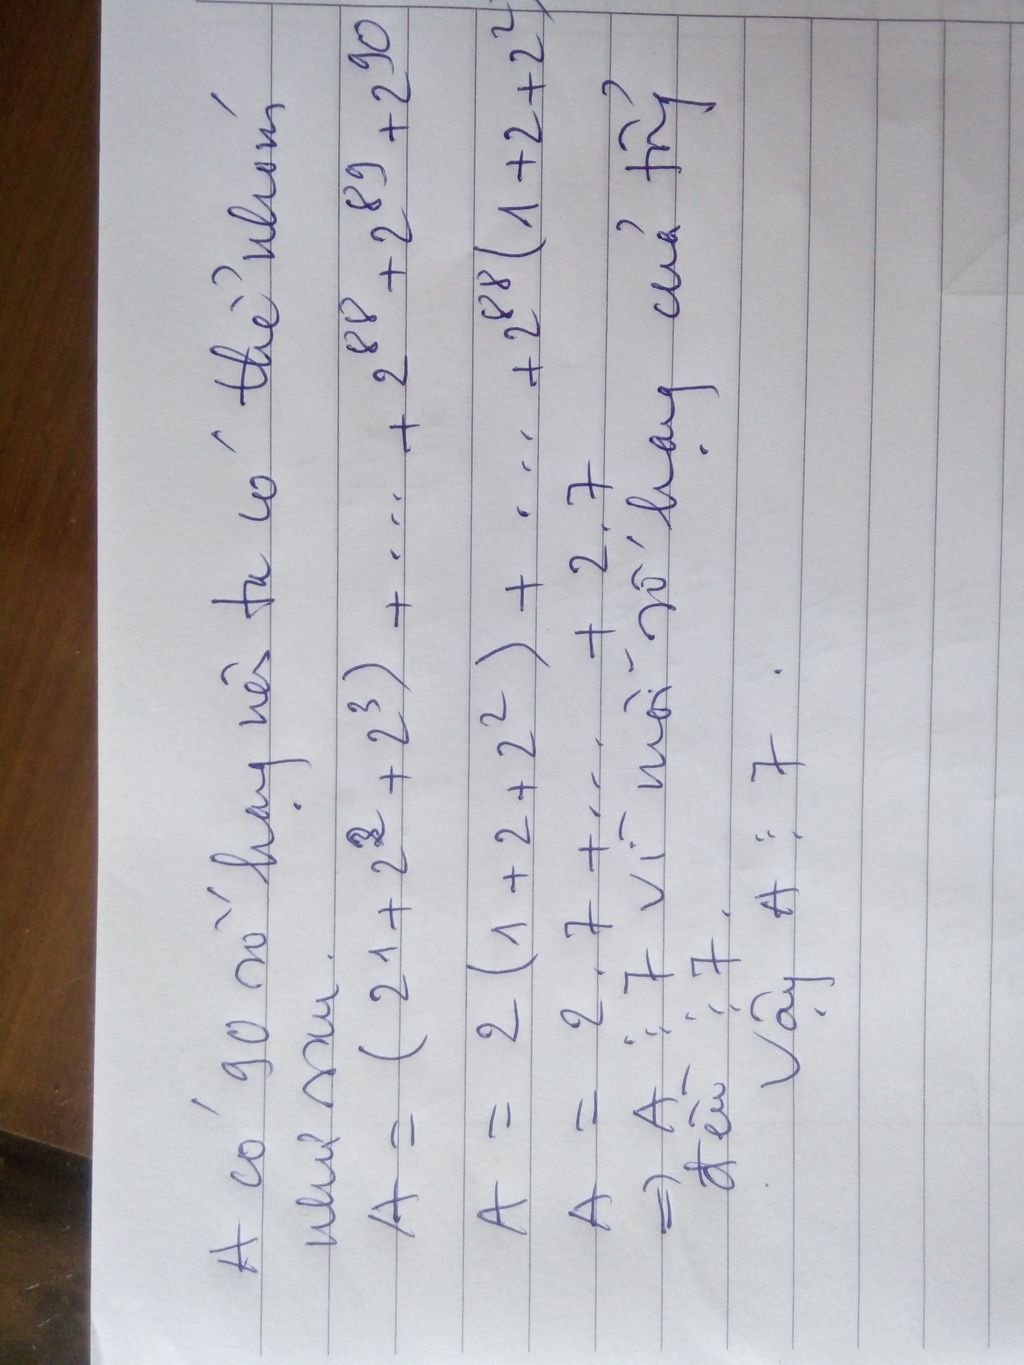 A có 90 số hạng nên ta có thể nhóm
như sau.
A = (21 + 2² + 2³) + .... + 2⁸⁸ + 2⁸⁹ + 2⁹⁰
A = 2(1 + 2 + 2²) + .... + 2⁸⁸(1 + 2 + 2²)
A = 2.7 + .... + 2.7
⇒ A ⋮ 7 vì mỗi số hạng của tổng
đều ⋮ 7.
Vậy A ⋮ 7.